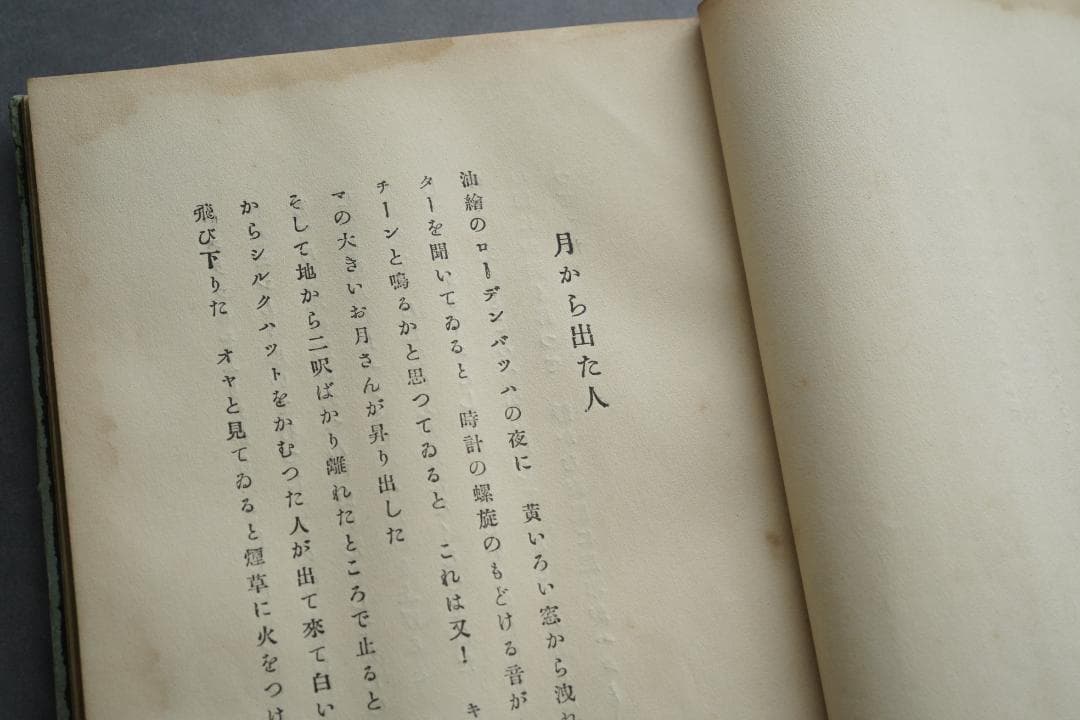 月から出た人
油繪のローデンバッハの夜に　黄いろい窓から洩れ
ターを聞いてゐると　時計の螺旋のもどける音が
チーンと鳴るかと思つてゐると　これは又！　キ
マの大きいお月さんが昇り出した
そして地から二呎ばかり離れたところで止ると
からシルクハットをかむつた人が出て來て白い
飛び下りた　オヤと見てゐると煙草に火をつけ